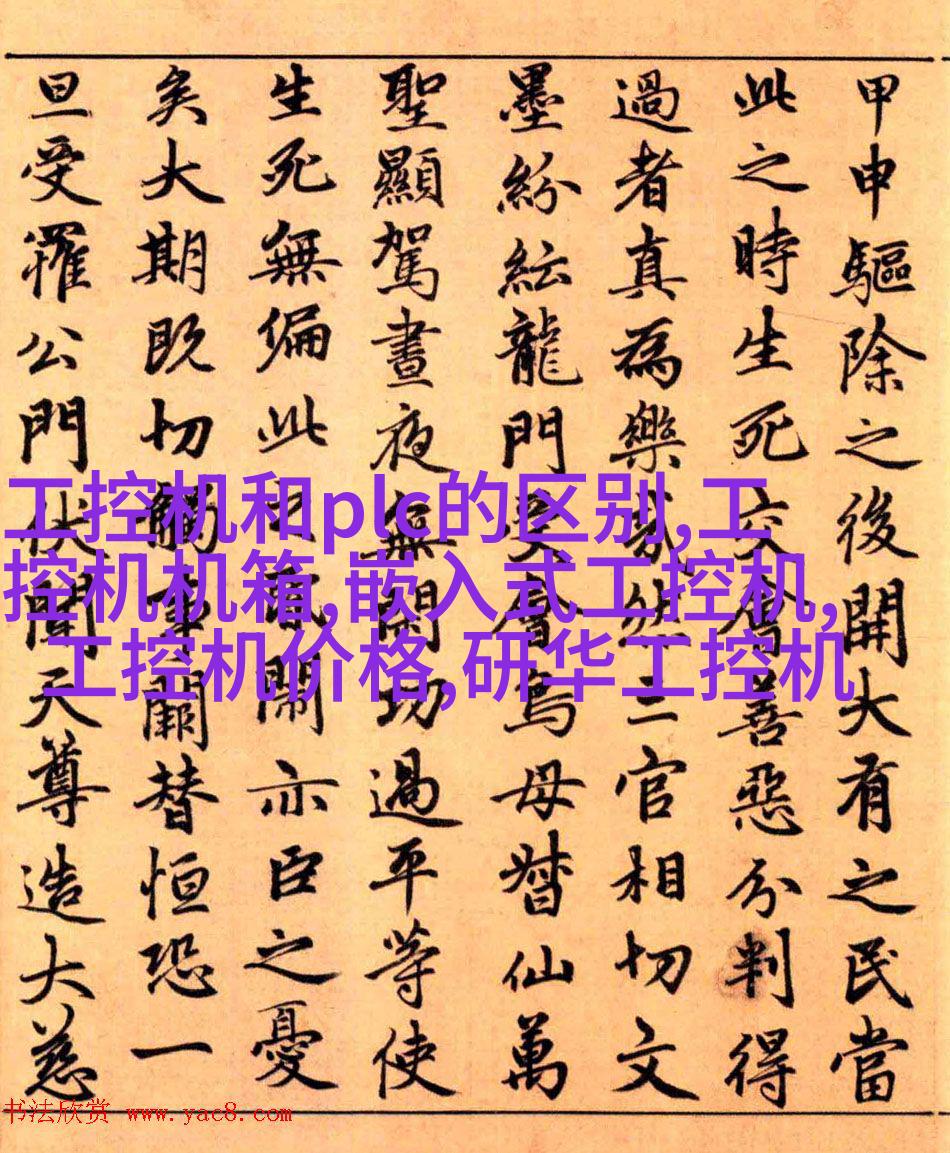 甲申驅除之後開大有之民當
此之時生死交會善惡分判得
過者真為樂哉然三官相切文
墨紛紜龍門受會鳥母督仙萬
聖顯駕晝夜無閑功過平等使
生死無偏此之亦臣之憂
矣大期既切觸事闕替恒恐一
旦受罹公門伏聞天尊造大慈
工控机和plc的区别,工
控机机箱,嵌入式工控机,
工控机价格,研华工控机
书法欣赏 www.yac8.com